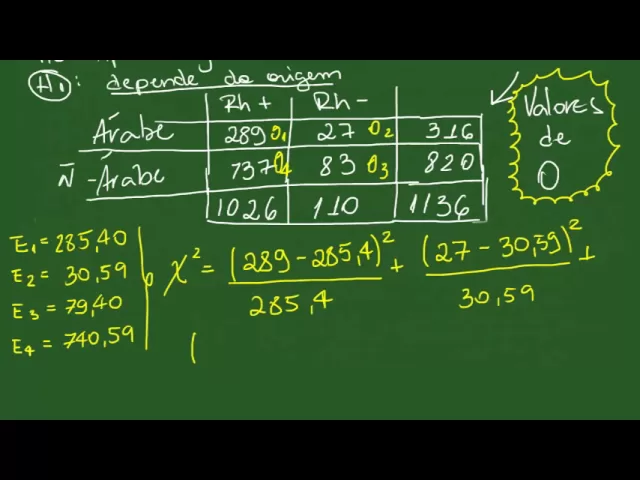 H₁: depende da origem
Rh + Rh -
Árabe 289 O₁ 27 O₂ 316
Ñ - Árabe 737 O₄ 83 O₃ 820
1026 110 1136
Valores
de
O
E₁ = 285,40
E₂ = 30,59
E₃ = 79,40
E₄ = 740,59
χ² = (289 - 285,4)² / 285,4 + (27 - 30,59)² / 30,59 +
(